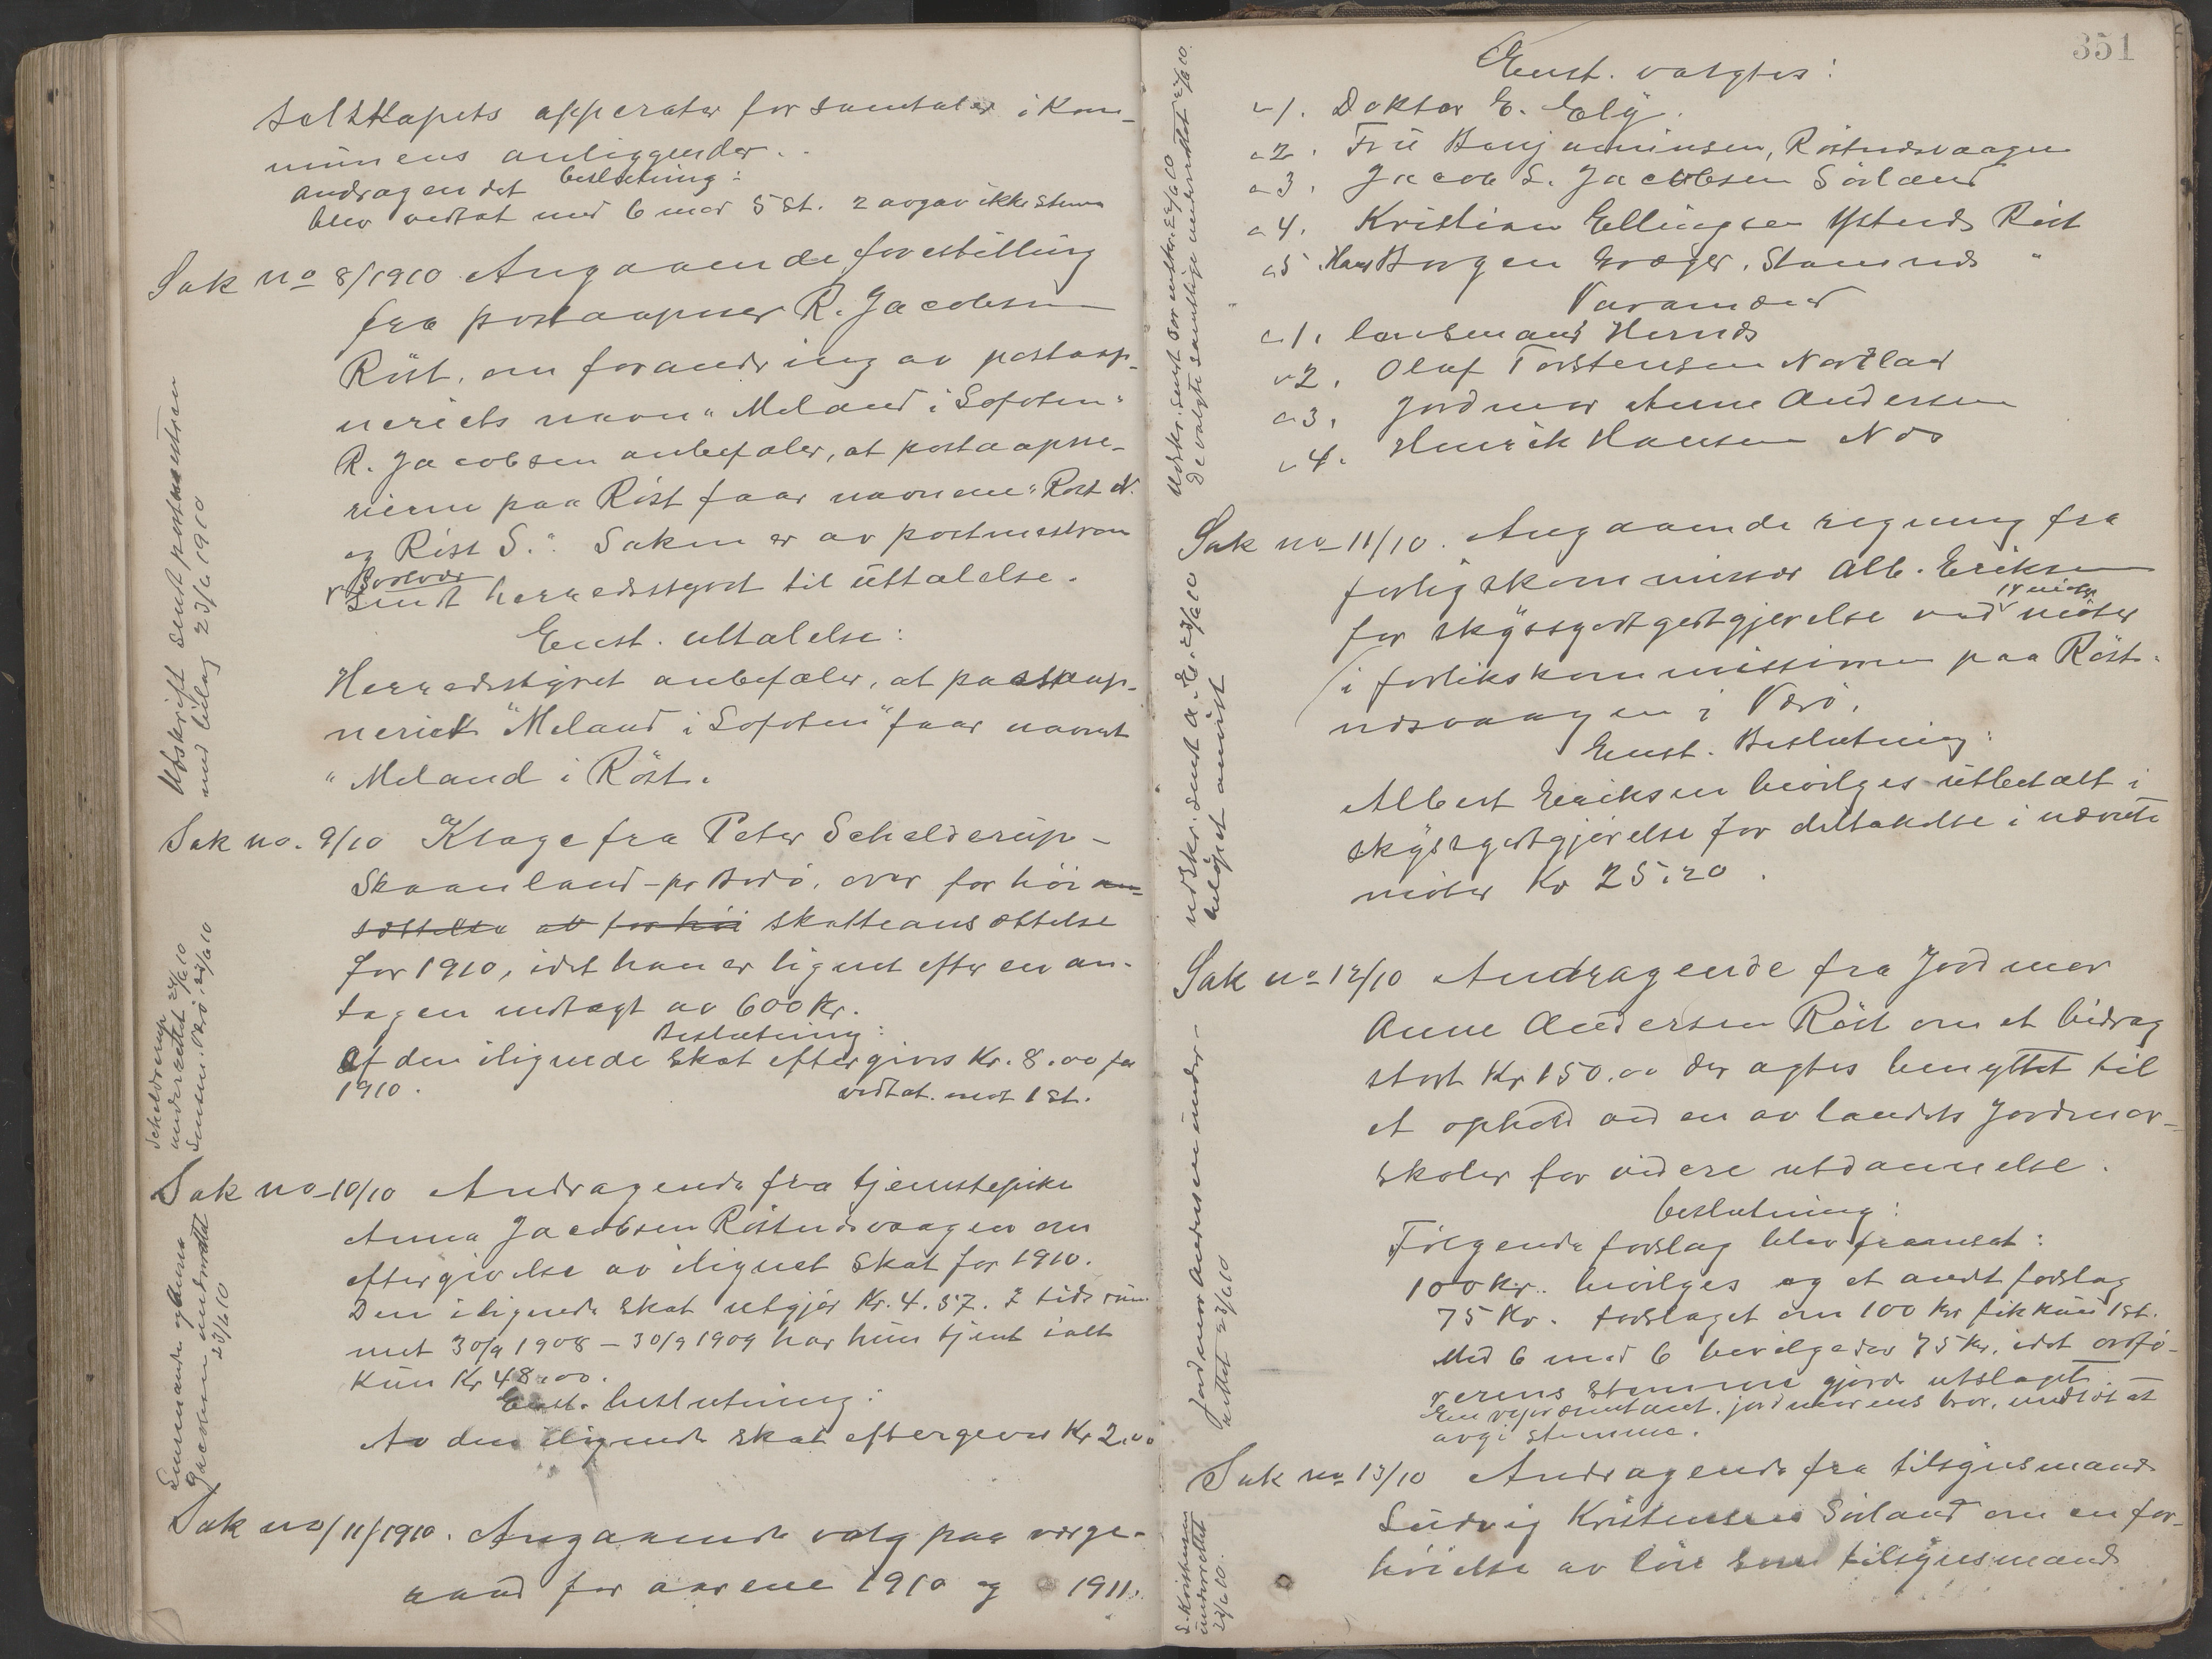 selskapets apperater for samtaler i Kom-
munens anliggender.
beslutning:
Andragendet
blev vedtat med 6 mod 5 St. 2 avgav ikke stemme
Sak no 8/1910 Angaaende forestilling
fra postaapner R. Jacobsen
Röst, om forandring av postaap-
neriets navn "Meland i Lofoten"
R. Jacobsen anbefaler, at postaapne-
rierne paa Röst faar navnene "Röst N.
og Röst S.". Saken er av postmesteren
i Bodö
sendt herredsstyret til uttalelse.
Enst. uttalelse:
Herredsstyret anbefaler, at postaap-
neriet "Meland i Lofoten" faar navnet
"Meland i Röst.
Avskrift sendt postmesteren
med bilag 23/6 1910
Sak no. 9/10 Klage fra Peter Schelderup-
Skaanland - pr Bodö, over for höi an-
sættelse av for höi skatteansættelse
for 1910, idet han er lignet efter en an-
tagen indtægt av 600 Kr.
Beslutning:
Af den ilignede Skat eftergives Kr. 8.00 for
1910. vedtat mot 1 St.
Schelderup
underrettet 24/6 10
Værö 24/6 10
Sak no 10/10 Andragende fra tjenstepike
Anna Jacobsen Röstnesvaagen om
eftergivelse av ilignet Skat for 1910.
Den ilignede Skat utgjör Kr. 4.57. I tidsrum-
met 30/9 1908 - 30/9 1909 har hun tjent ialt
kun Kr 48.00.
Enst. beslutning:
Av den ilignede Skat eftergives Kr 2.00
og Anna
Jacobsen underrettet
23/6 10
Sak no 11/1910. Angaaende valg paa verge-
raad for aarene 1910 og 1911.
351
Enst. valgtes:
1. Doktor E. Elg.
2. Fru Benjaminsen, Röstnesvaagen
3. Jacob L. Jacobsen Sörland
4. Kristian Ellingsen Ystnes Röst
5. Hans Borgen Kræger, Stavnes "
Varamænd
1. lensmand Hernes
2. Olaf Torstensen Nordland
3. Jordmor Anne Andersen
4. Henrik Hansen Nes
De valgte samtlige underrettet 24/6 10.
Sak no 11/10. Angaaende regning fra
forligskommissær Alb. Eriksen
for skyssgodtgjörelse ved 14 möter
i forlikskommissionen paa Röst-
nesvaagen i Værö.
Enst. Beslutning:
Albert Eriksen bevilges utbetalt i
skyssgodtgjörelse for deltakelse i nævnte
möter Kr 25.20.
Utskr. sendt A. E. 23/6 10
belöpet anvist
Sak no 12/10 Andragende fra Jordmor
Anne Andersen Röst om et bidrag
stort Kr 150.00 der agtes benyttet til
et ophold ved en av landets Jordmor-
skoler for videre utdannelse.
beslutning:
Fölgende forslag blev fremsat:
100 Kr. bevilges og et andt forslag
75 Kr. Forslaget om 100 Kr fik kun 1 St.
Med 6 mod 6 bevilgedes 75 Kr. idet ordfö-
rerens stemme gjorde utslaget.
En representant, jordmorens bror, undlot at
avgi stemme.
Jordmor Andersen under-
rettet 23/6 10
Sak no 13/10 Andragende fra tilsynsmand
Ludvig Kristensen Sörland om en for-
höielse av lön som tilsynsmand
L. Kristensen
underrettet
23/6 10.